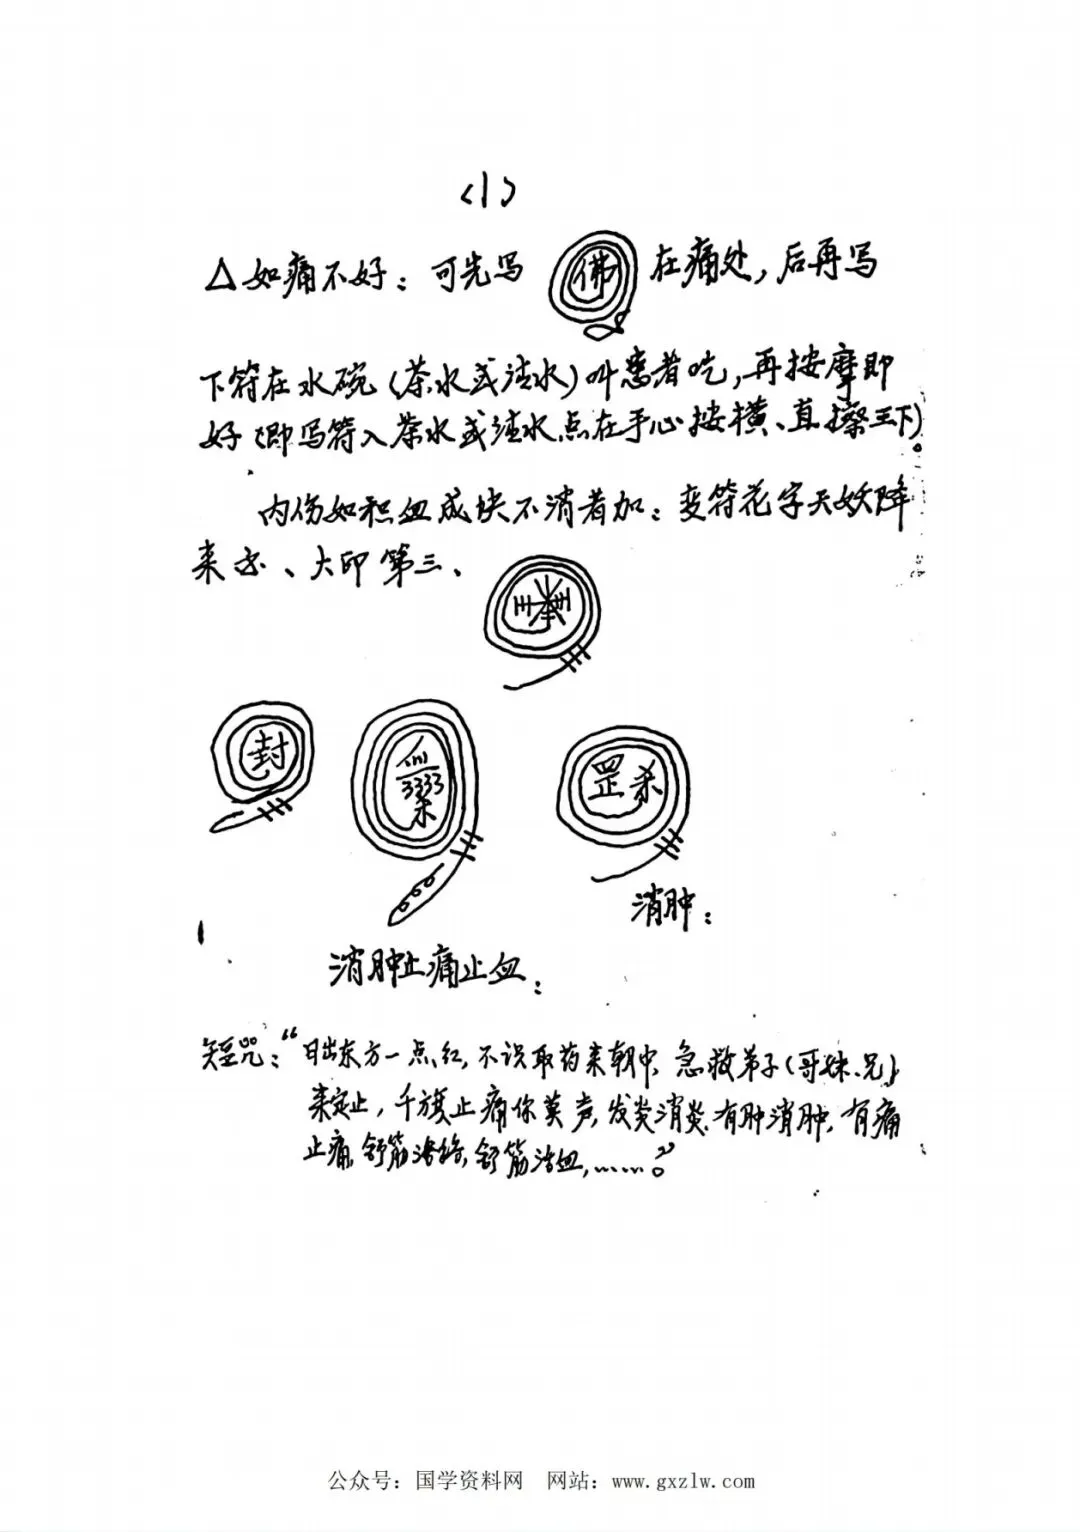 <1>
△如痛不好：可先写 佛 在痛处，后再写
下符在水碗（茶水或法水）叫患者吃，再按摩即
好（即写符入茶水或法水，点在手心按横、直擦三下）。
内伤如积血成块不消者加：变符花字天妖降
来 、大印第三、
封
罡杀
消肿：
消肿止痛止血：
短咒：“日出东方一点红，不误取药来朝中，急救弟子（哥妹、兄）
来定止，千 止痛你莫声，发炎消炎，有肿消肿，有痛
止痛，舒筋活络，舒筋活血，……。”
公众号：国学资料网 网站：www.gxzlw.com